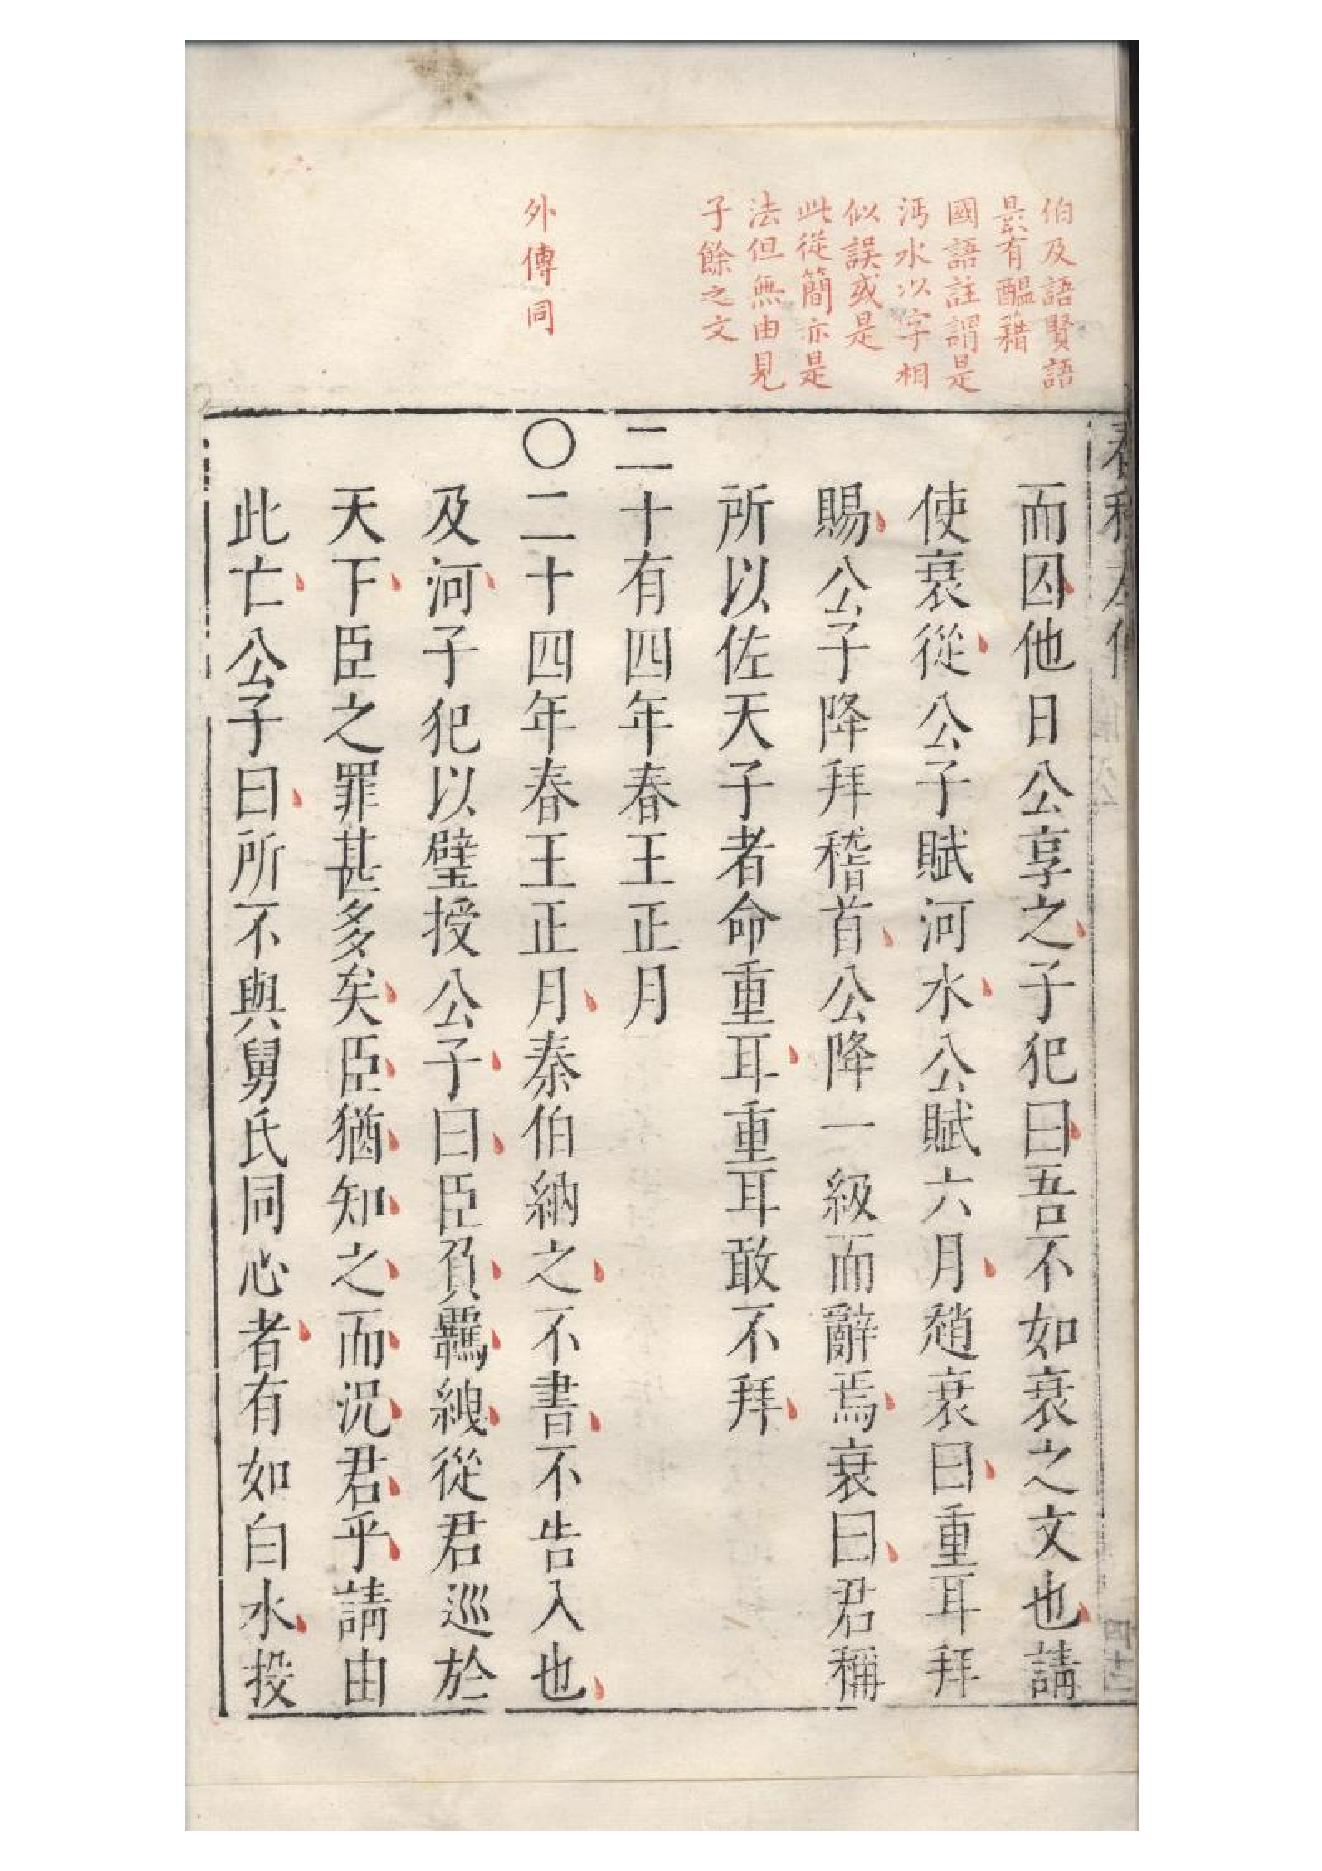 伯及語賢語
最有醞藉
國語註謂是
沔水以字相
似誤或是
此從簡亦是
法但無由見
子餘之文
外傳同
而囚他日公享之子犯曰吾不如衰之文也請
使衰從公子賦河水公賦六月趙衰曰重耳拜
賜公子降拜稽首公降一級而辭焉衰曰君稱
所以佐天子者命重耳重耳敢不拜
二十有四年春王正月
〇二十四年春王正月秦伯納之不書不告入也
及河子犯以璧授公子曰臣負羈絏從君巡於
天下臣之罪甚多矣臣猶知之而況君乎請由
此亡公子曰所不與舅氏同心者有如白水投